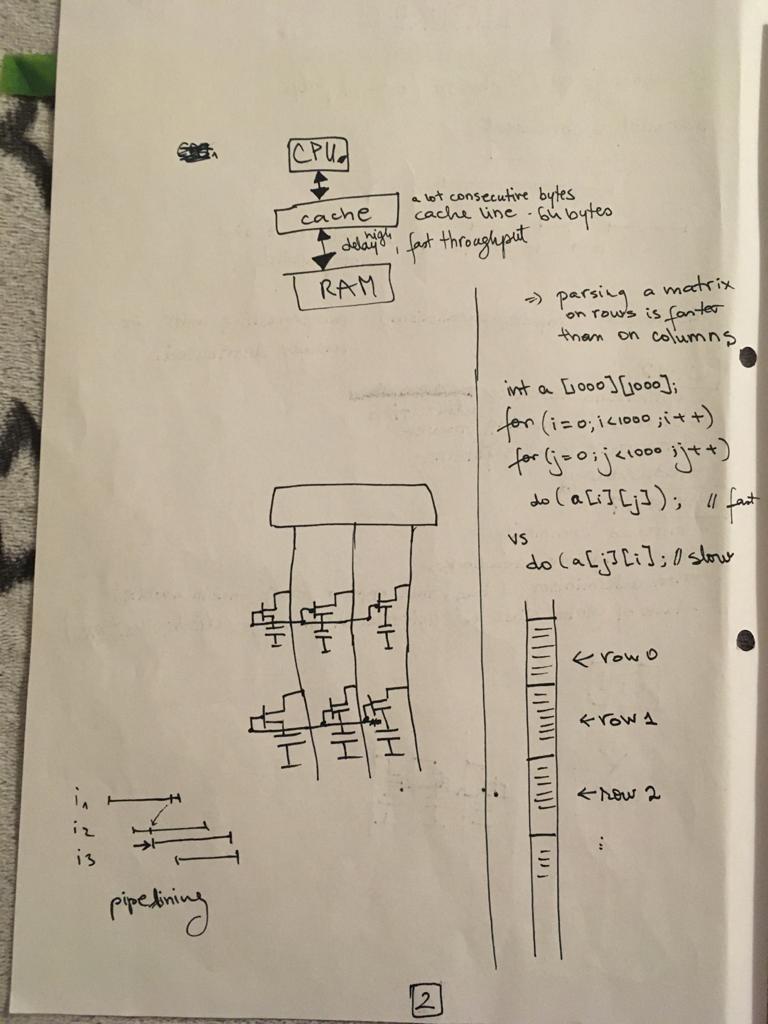 CPU
cache
a lot consecutive bytes
cache line - 64 bytes
high
delay, fast throughput
RAM
=> parsing a matrix
on rows is faster
than on columns
int a [1000][1000];
for (i=0; i<1000; i++)
for (j=0; j<1000; j++)
do (a[i][j]); // fast
vs
do (a[j][i]; // slow
← row 0
← row 1
← row 2
⋮
i1
i2
i3
pipelining
2